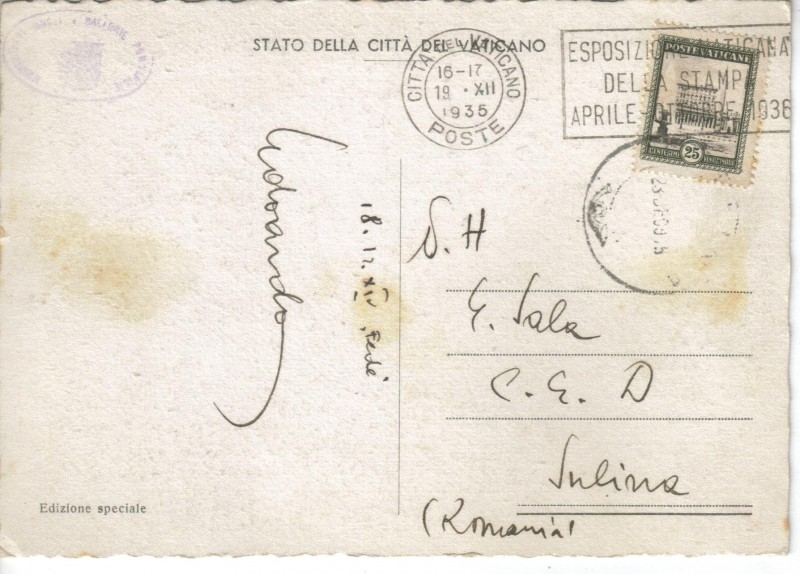 STATO DELLA CITTÀ DEL VATICANO
CITTÀ DEL VATICANO
16-17
19 · XII
1935
POSTE
ESPOSIZIONE VATICANA
DELLA STAMPA
APRILE OTTOBRE 1936
POSTE VATICANE
CENTESIMI 25
18.12.XIV
S. H
E. Sala
C. E. D
Sulina
(Romania)
Edizione speciale